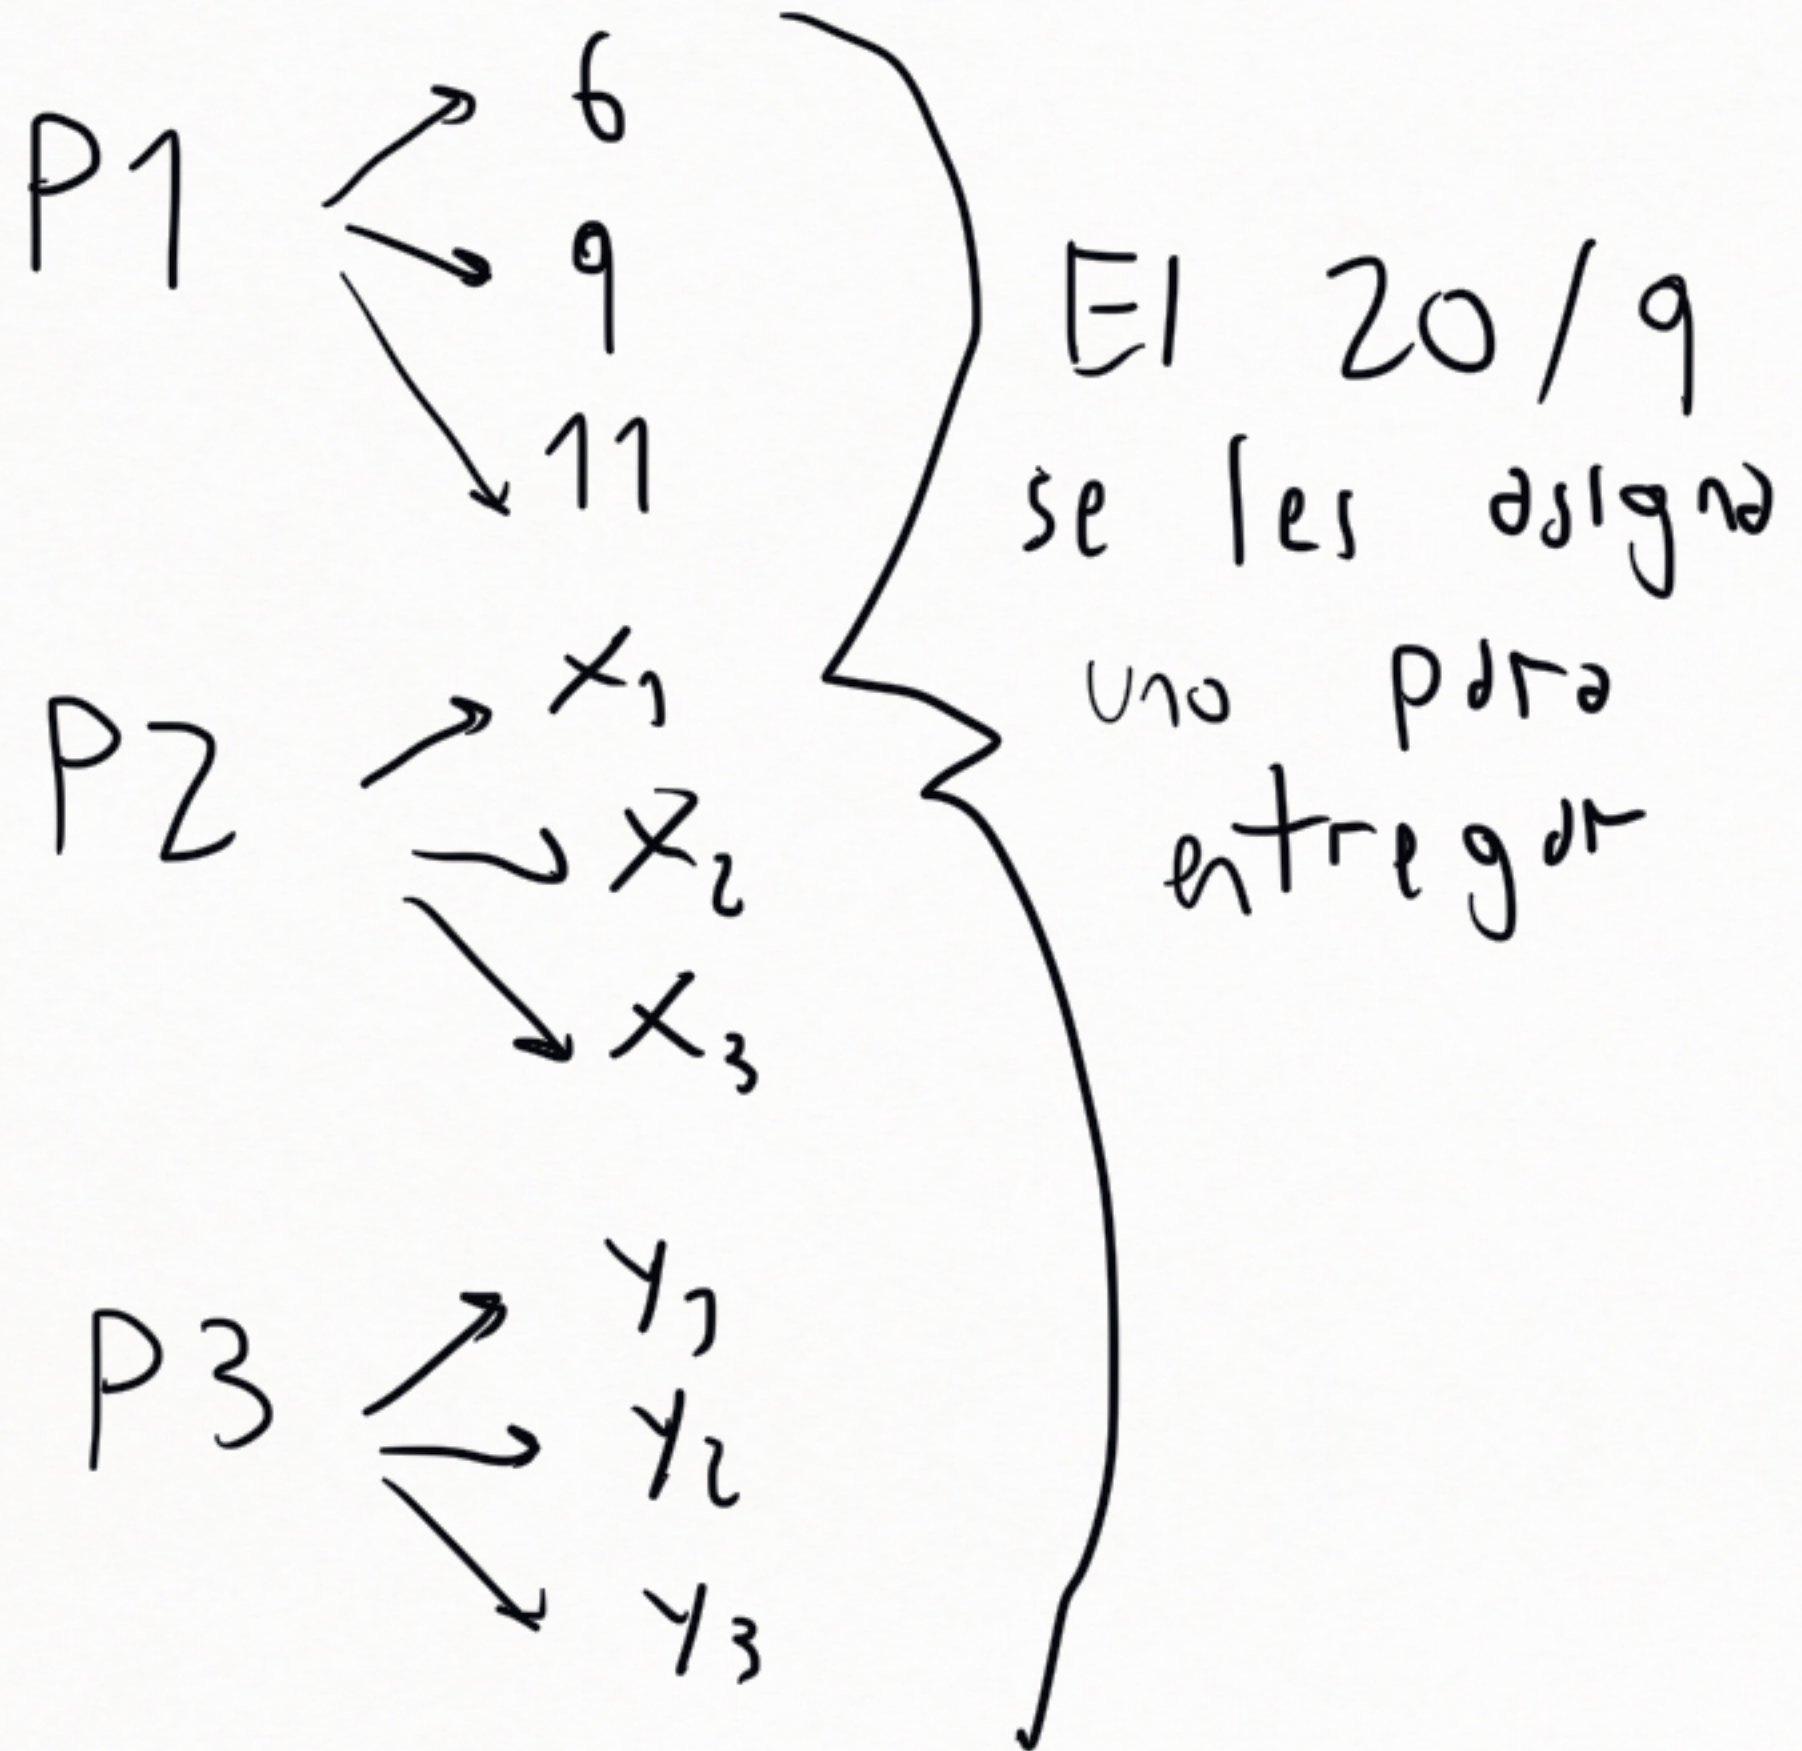 P1
6
9
11
P2
X1
X2
X3
P3
Y1
Y2
Y3
El 20/9
se les asigna
uno para
entregar